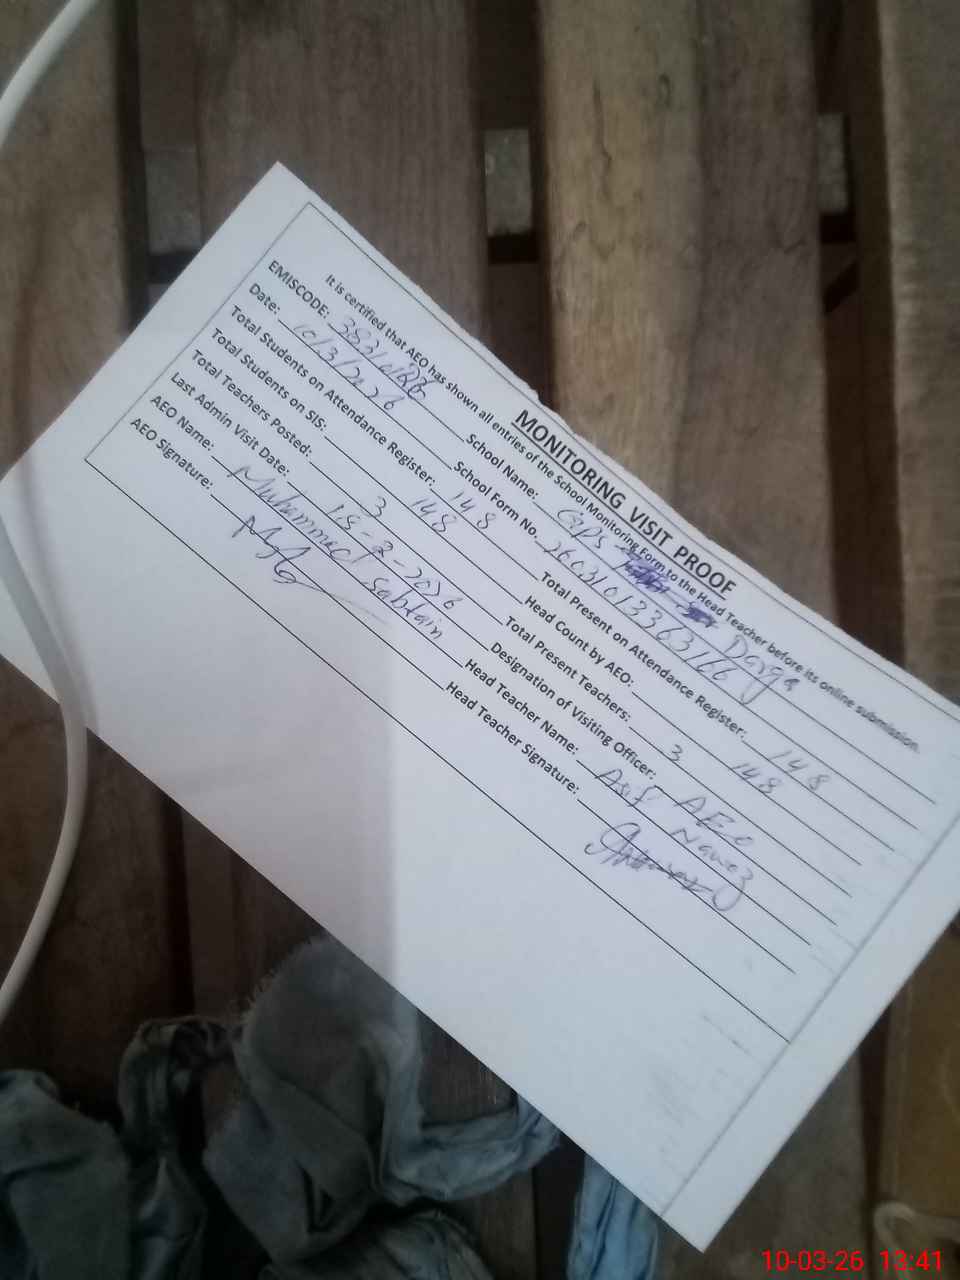 MONITORING VISIT PROOF
It is certified that AEO has shown all entries of the School Monitoring Form to the Head Teacher before its online submission.
EMISCODE: School Name: GPS Darga
Date: 10/3/2026 School Form No. 26031013363166
Total Students on Attendance Register: 148 Total Present on Attendance Register: 148
Total Students on SIS: 148 Head Count by AEO: 148
Total Teachers Posted: 3 Total Present Teachers: 3
Last Admin Visit Date: 18-2-2026 Designation of Visiting Officer: AEO
AEO Name: Muhammad Sabtain Head Teacher Name: Asif Nawaz
AEO Signature: Head Teacher Signature:
10-03-26 13:41